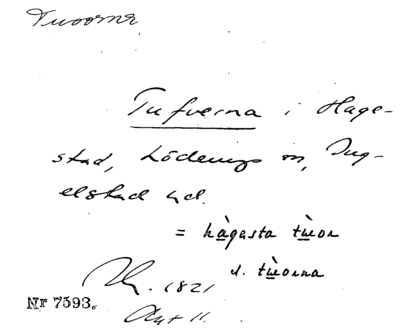 Tuvorna
Tufverna i Hage-
stad, Löderups sn, Ing-
elstad hd.
= hàgasta tẁor
l. tẁorna
1821
Nr 7593.
Akt 11.